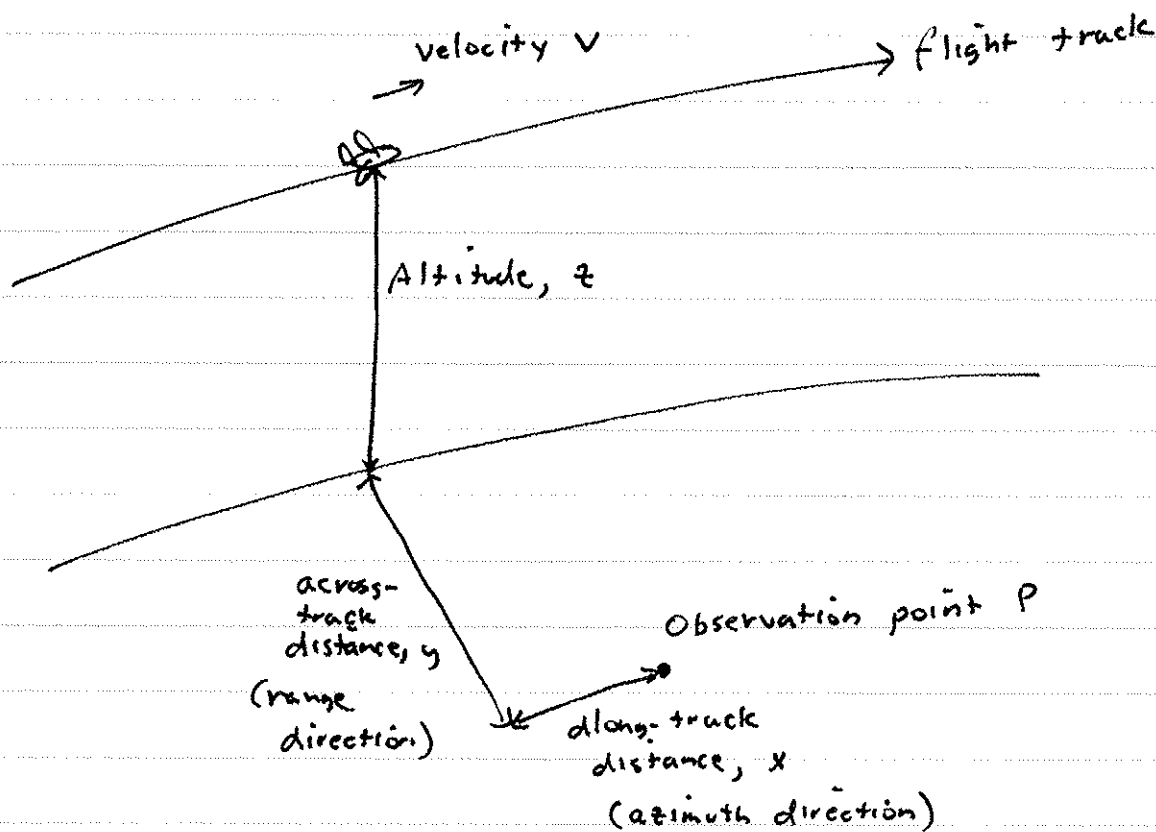 velocity V
flight track
Altitude, z
across-
track
distance, y
(range
direction)
Observation point P
along-track
distance, x
(azimuth direction)